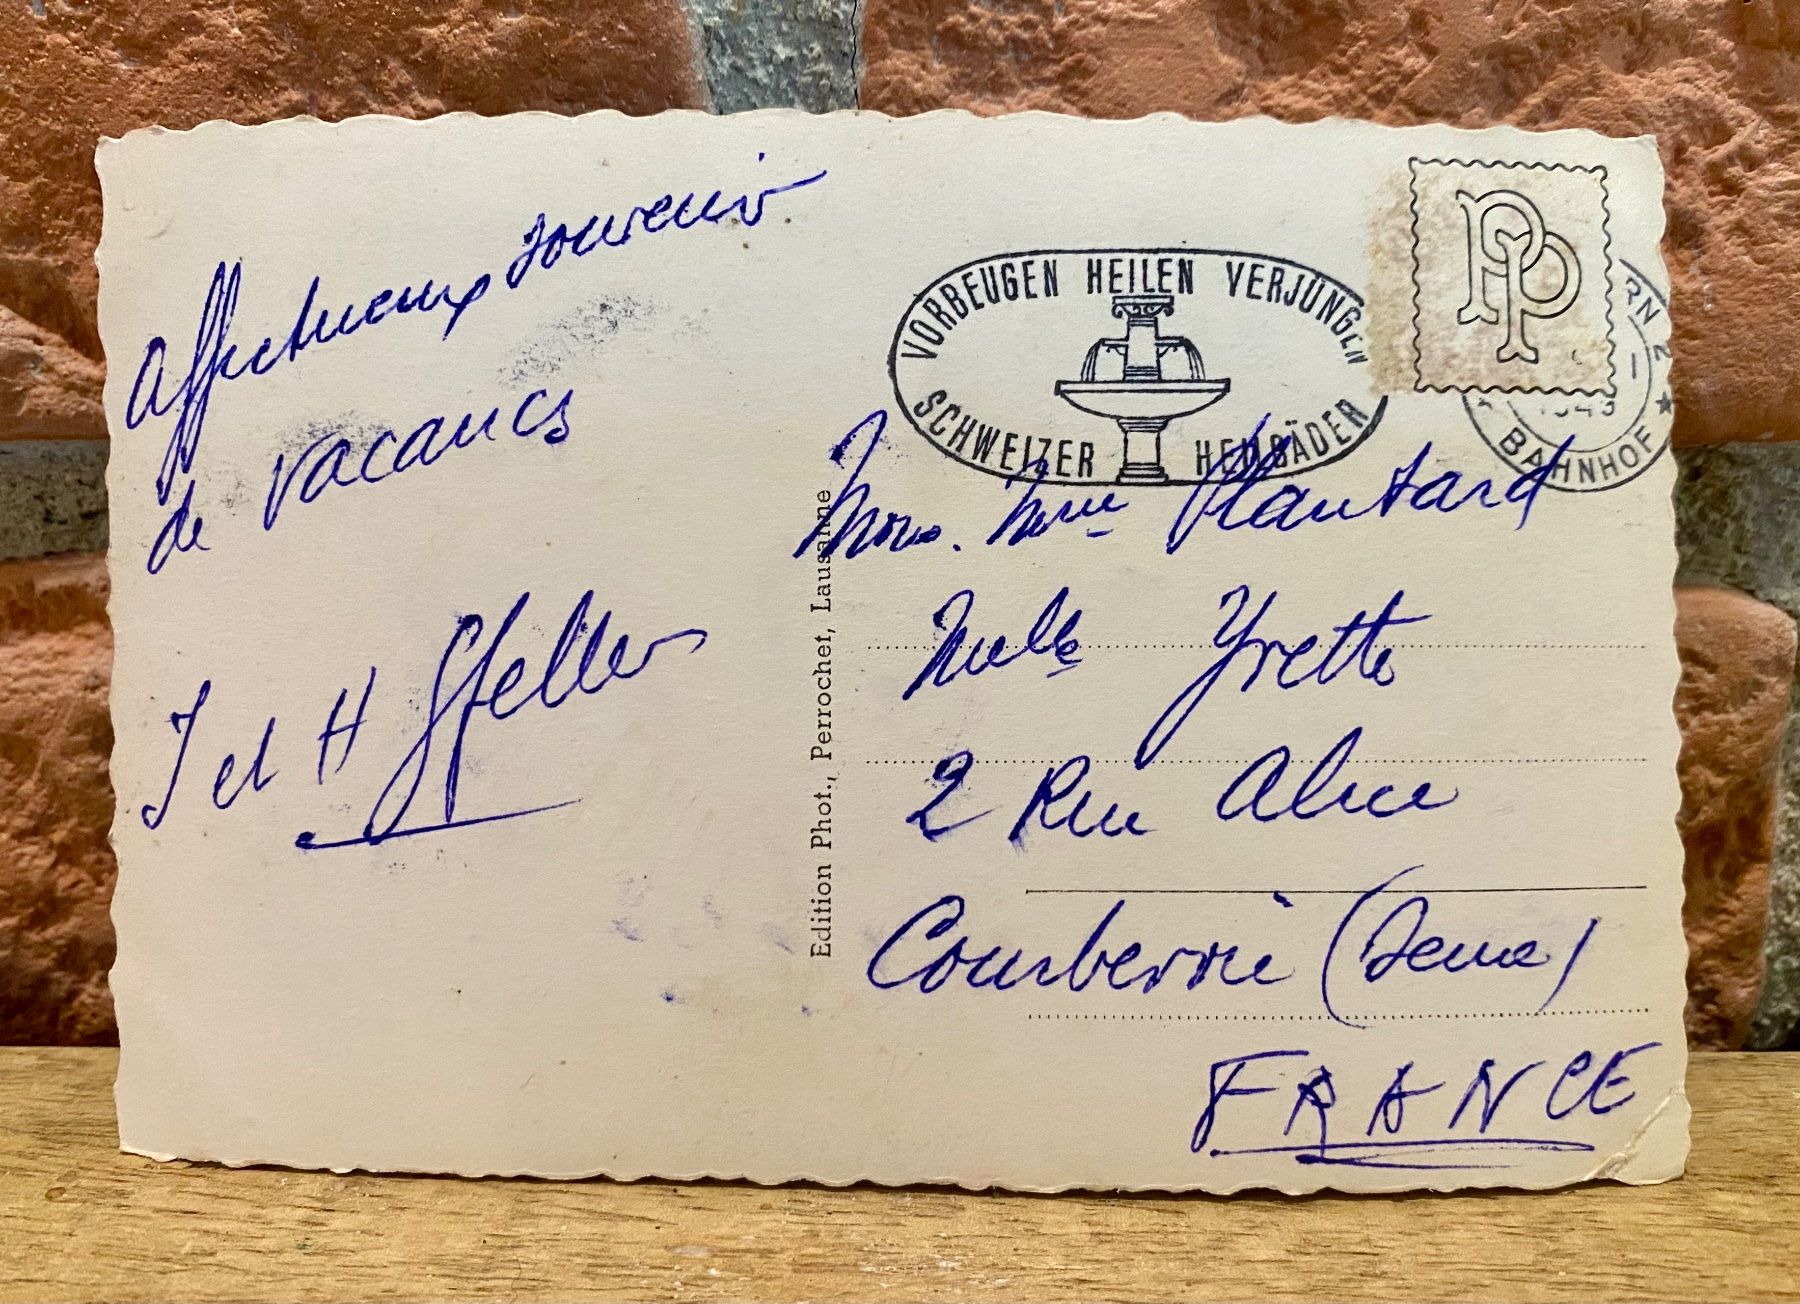 Affectueux souvenir
de vacances
J et H Gfeller
Edition Phot., Perrochet, Lausanne
VORBEUGEN HEILEN VERJÜNGEN
SCHWEIZER HEILBÄDER
PP
RN 2
BAHNHOF
Mons. Mme Plantard
Melle Yvette
2 Rue Alice
Courbevoie (Seine)
FRANCE